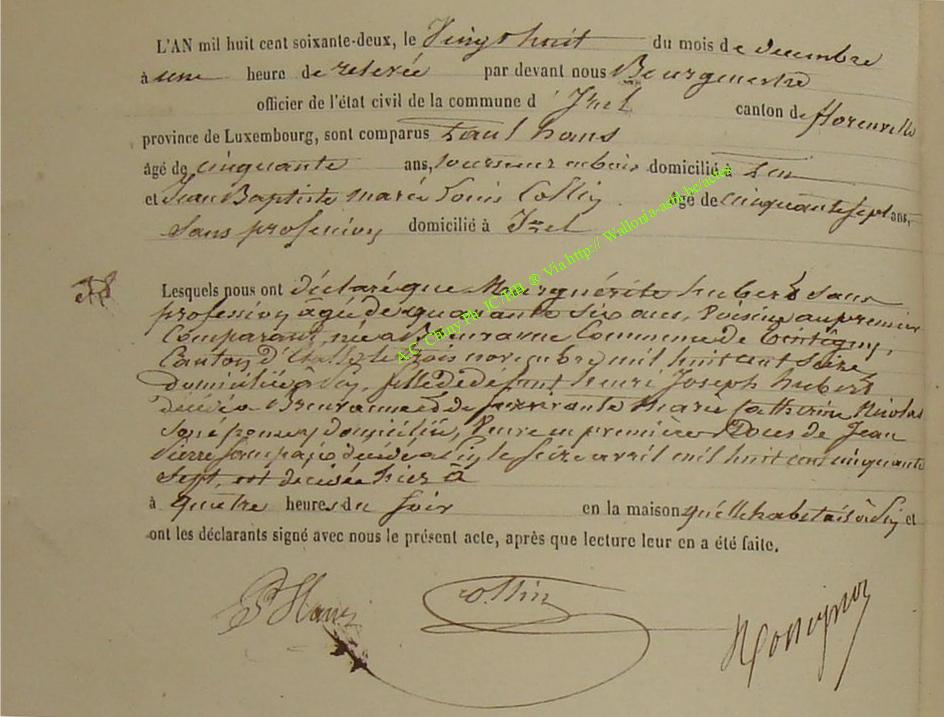 L'AN mil huit cent soixante-deux, le Vingt huit du mois de decembre
à une heure de relevée par devant nous Bourgmestre
officier de l'état civil de la commune d' Izel canton de florenville
province de Luxembourg, sont comparus Paul hans
âgé de cinquante ans, tourneur en bois domicilié à
et Jean Baptiste marie Louis Collin âgé de cinquante sept ans,
Sans profession domicilié à Izel
Lesquels nous ont déclaré que Marguérite hubert sans
profession âgé de quarante six ans, Voisine au premier
Comparant, née à commune de tintigny,
Canton d'Etalle le trois novembre mil huit cent seize
domiciliée à fille de défunt henri Joseph hubert
décédé à et de survivante Marie Catherine Nicolas
son épouse y domiciliée, Veuve en premières noces de Jean
Pierre décédé à le seize avril mil huit cent cinquante
Sept, est décédée hier à
à quatre heures du Soir en la maison qu'elle habitait à et
ont les déclarants signé avec nous le présent acte, après que lecture leur en a été faite.
P Hans Collin
A.C. Chiny Ph. JC/HH @ Via http:// Wallonia-asbl.be/actes